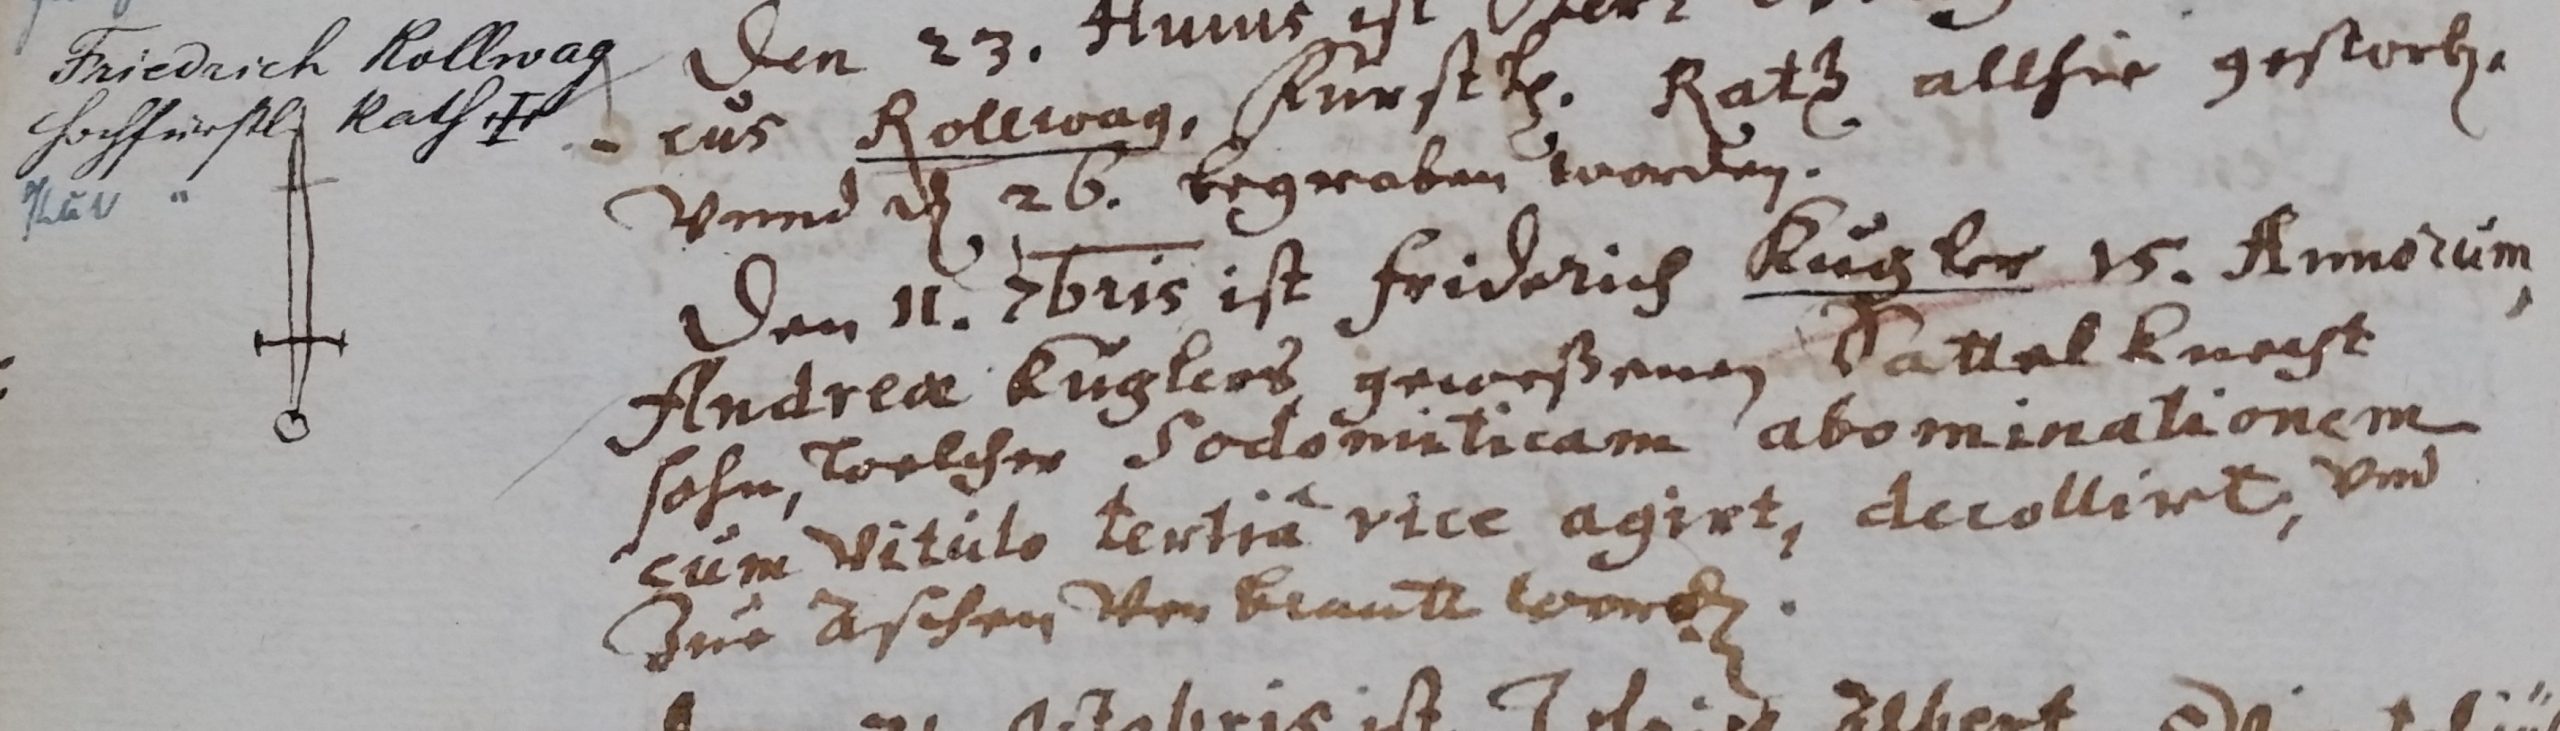 Friedrich Rollwag
hochfürstl. Rath
Den 23. Huius ist Herr
cus Rollwag, Fürstl. Rath allhie gestorb.
Vnnd d. 26. begraben worden.
Den 11. 7bris ist Friderich Kugler 15. Annorum,
Andreæ Kuglers geweßenen Sattelknecht
sohn, welcher Sodomiticam abominationem
cum Vitulo tertiâ vice agirt, decollirt, vnd
Zue Aschen Verbrantt worden.
Octobris ist Albert